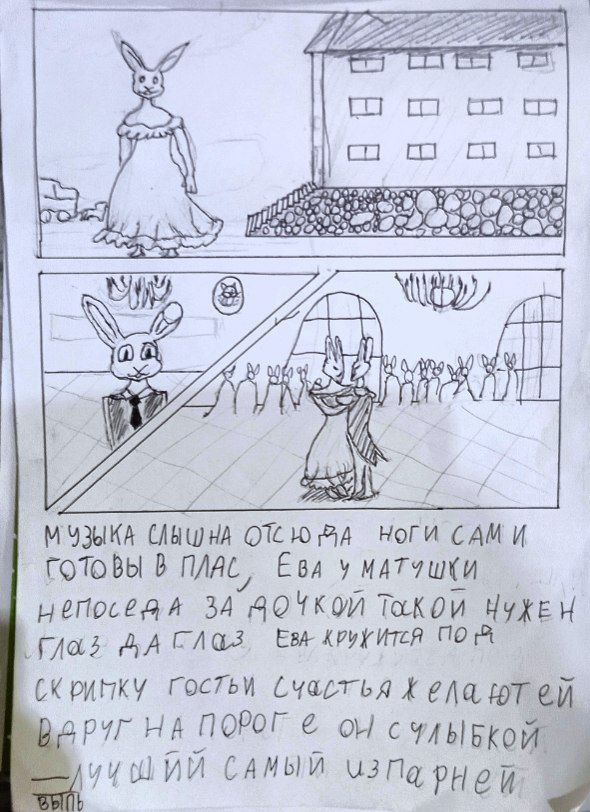 МУЗЫКА СЛЫШНА ОТСЮДА НОГИ САМИ
ГОТОВЫ В ПЛАС, ЕВА У МАТУШКИ
НЕПОСЕДА ЗА ДОЧКОЙ ТАКОЙ НУЖЕН
ГЛАЗ ДА ГЛАЗ ЕВА КРУЖИТСЯ ПОД
СКРИПКУ ГОСТЬИ СЧАСТЬЯ ЖЕЛАЮТ ЕЙ
ВДРУГ НА ПОРОГЕ ОН С УЛЫБКОЙ
— ЛУЧШИЙ САМЫЙ ИЗ ПАРНЕЙ
ВЫПЬ